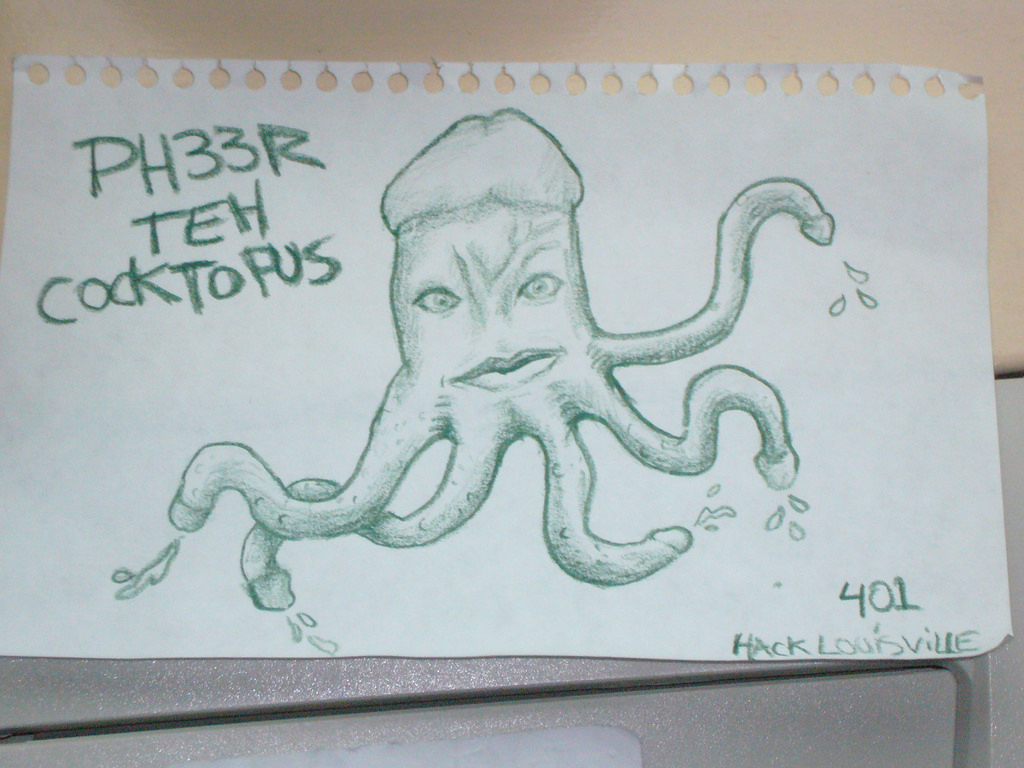 PH33R
TEH
COCKTOPUS
401
HACK LOUISVILLE